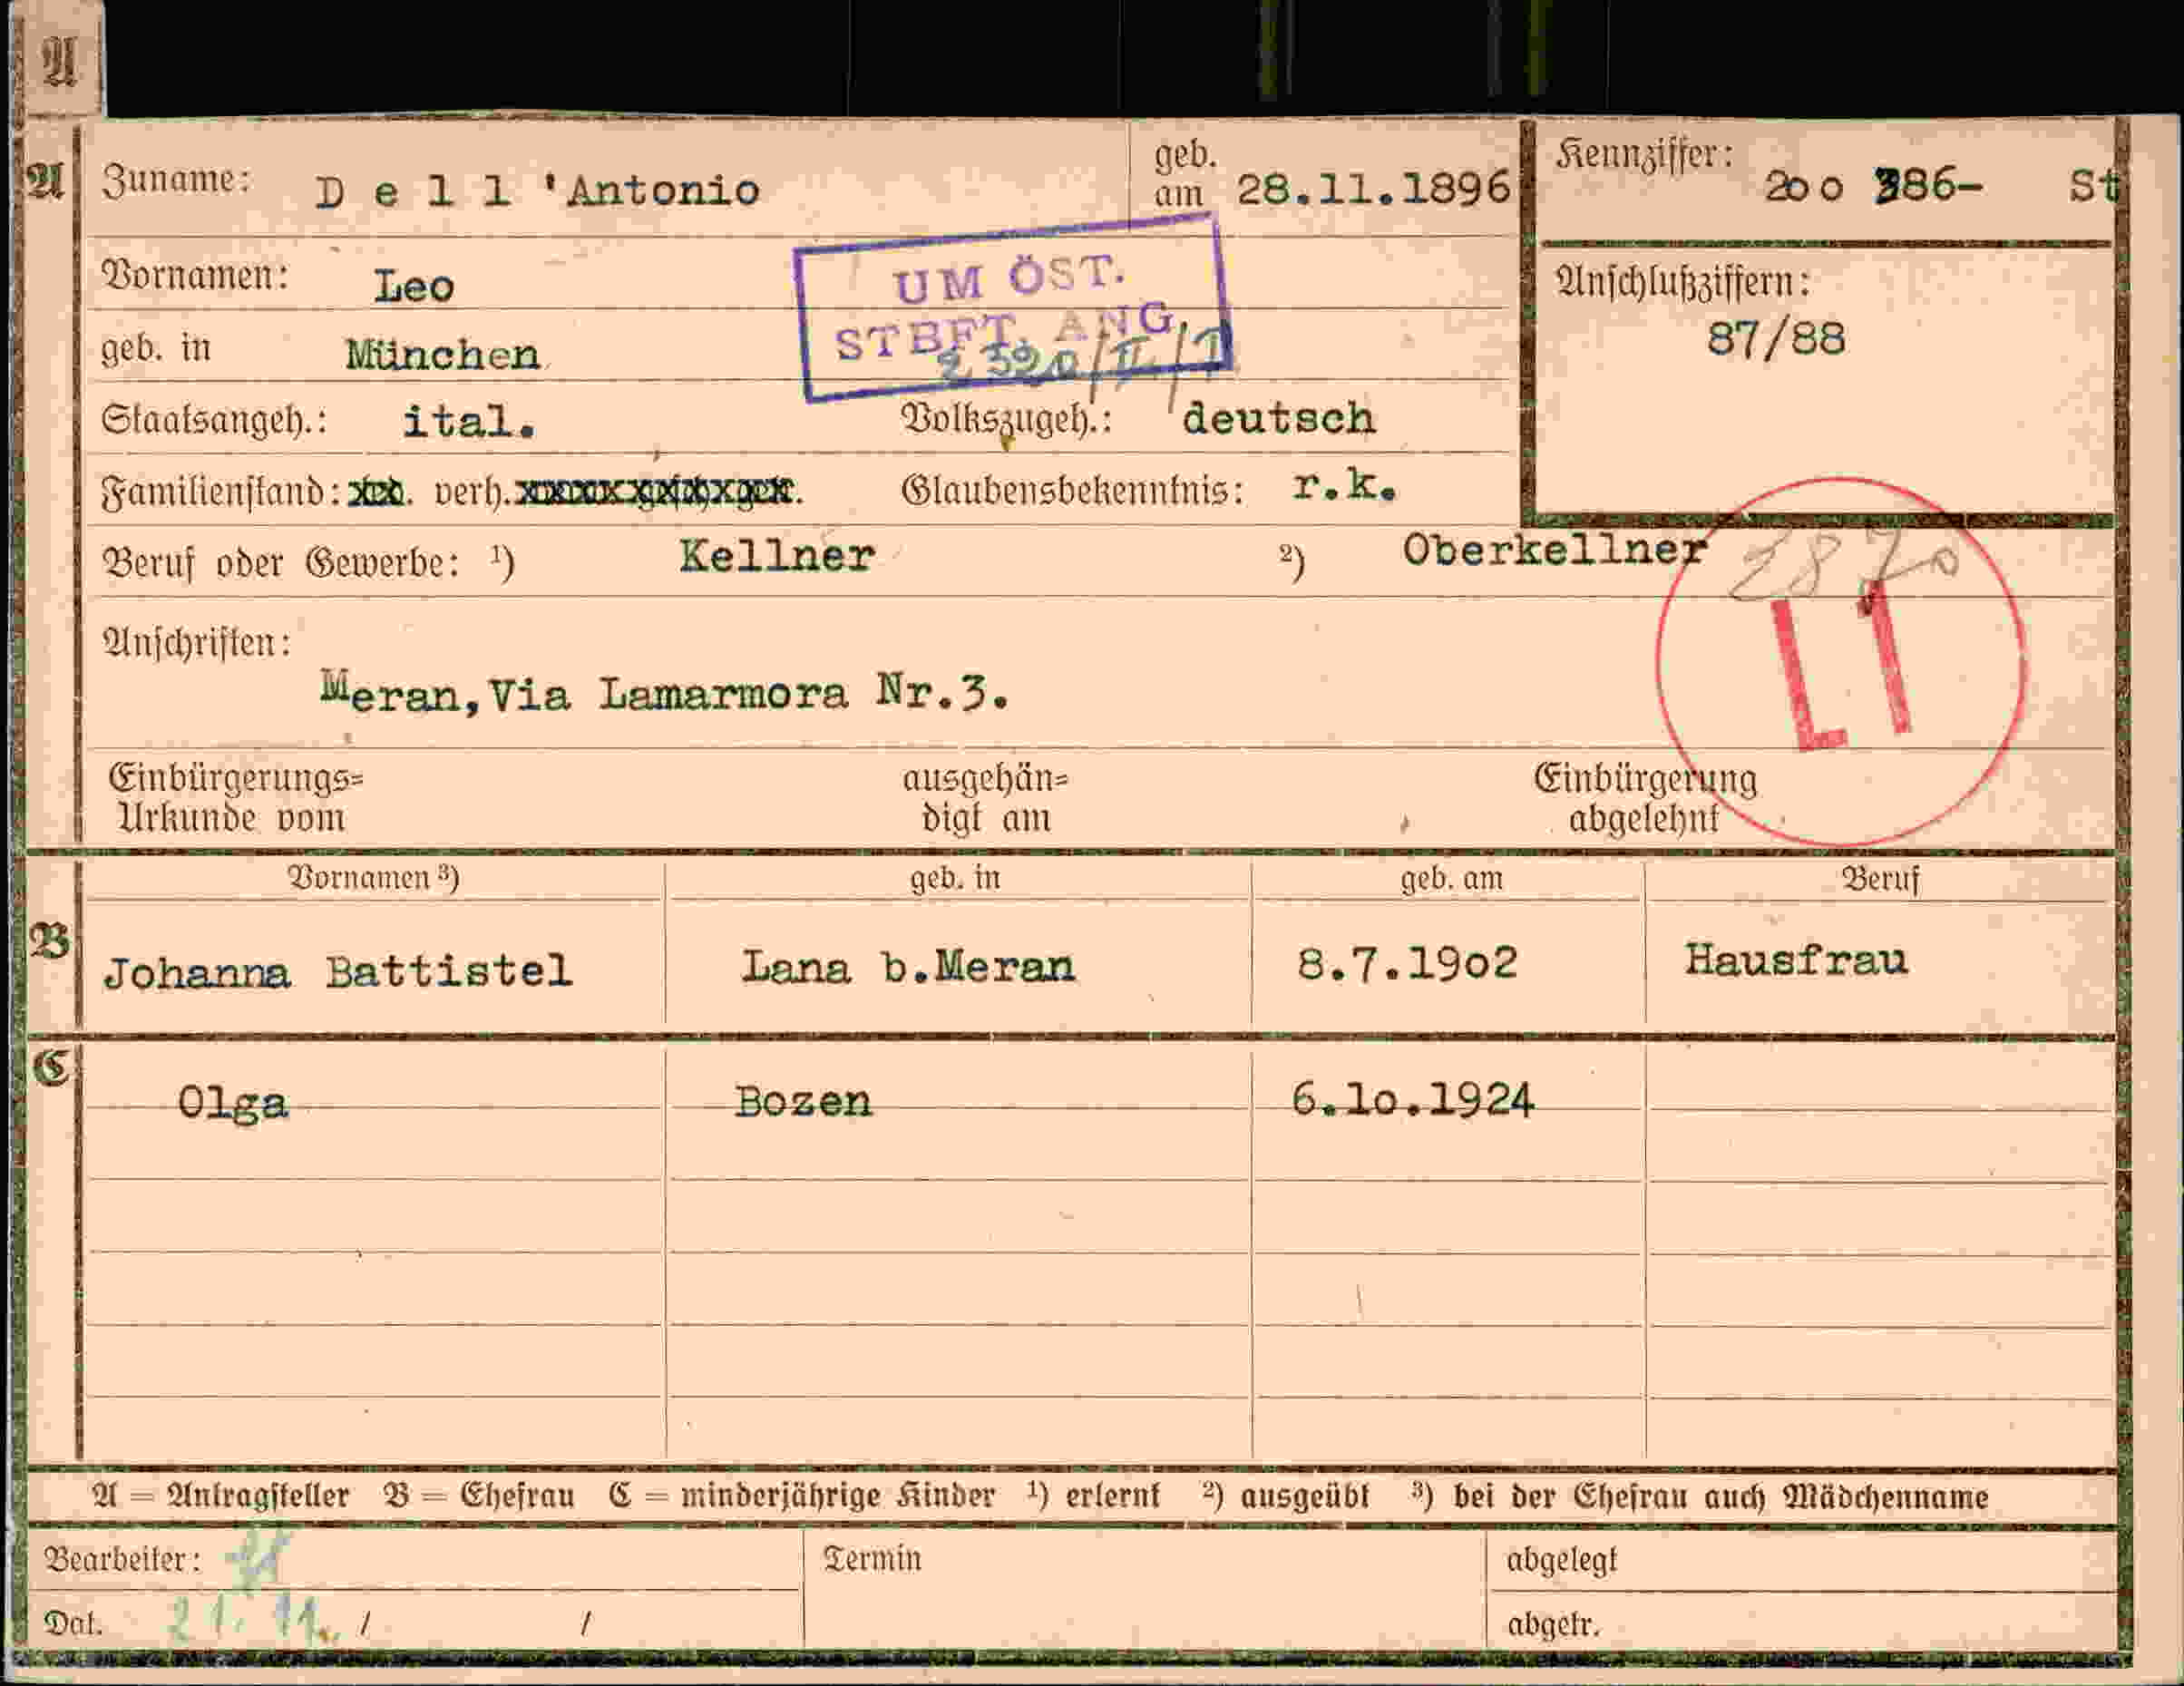 A
A
Zuname: D e l l 'Antonio
geb. am 28.11.1896
Kennziffer: 2oo 386- St
Vornamen: Leo
UM ÖST.
STBFT. ANG.
Anschlußziffern:
87/88
geb. in München
Staatsangeh.: ital. Volkszugeh.: deutsch
Familienstand: verh. Glaubensbekenntnis: r.k.
Beruf oder Gewerbe: ¹) Kellner ²) Oberkellner
2870
L1
Anschriften:
Meran,Via Lamarmora Nr.3.
Einbürgerungs= ausgehän= Einbürgerung
Urkunde vom digt am abgelehnt
Vornamen ³) geb. in geb. am Beruf
B
Johanna Battistel Lana b.Meran 8.7.19o2 Hausfrau
C
Olga Bozen 6.1o.1924
A = Antragsteller B = Ehefrau C = minderjährige Kinder ¹) erlernt ²) ausgeübt ³) bei der Ehefrau auch Mädchenname
Bearbeiter: Termin abgelegt
Dat. 21. 11. / / abgetr.